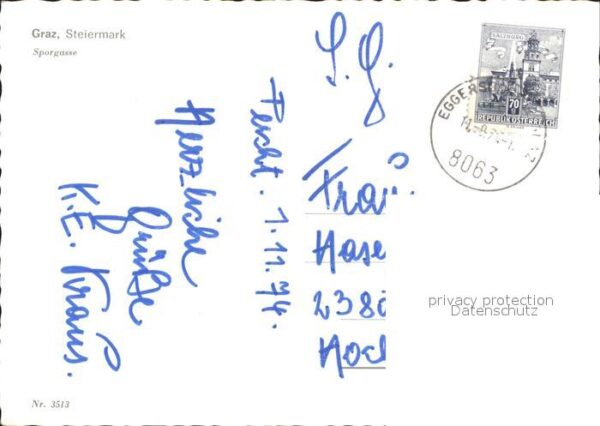 Graz, Steiermark
Sporgasse
Percht. 1.11.74.
Herzliche
Grüße
K.E. Kraus.
Nr. 3513
S. G.
Frau
Hase
238
Hoch
SALZBURG
70
REPUBLIK ÖSTERREICH
8063
privacy protection
Datenschutz